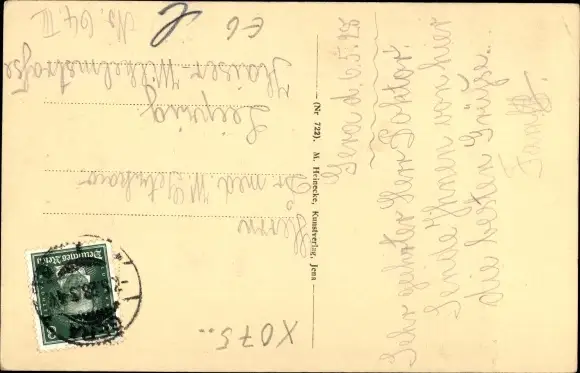 Gera d. 6.5.28
Sehr geehrter Herr Doktor!
Sende Ihnen von hier
die besten Grüsse..
(Nr 722). M. Heinecke, Kunstverlag, Jena
Herrn
Dr med. W.
Leipzig
Kaiser-Wilhelmstraße
No. 64 III
E6
X075..
Deutsches Reich
8
GERA